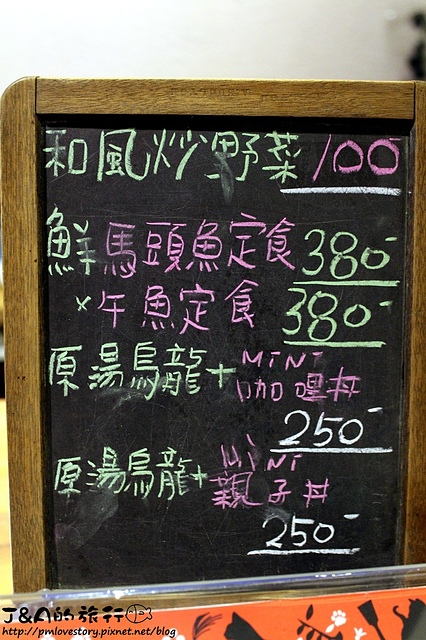 和風炒野菜 100
鮮馬頭魚定食 380-
×午魚定食 380-
原湯烏龍+MiNi咖哩丼
250-
原湯烏龍+MiNi親子丼
250-
J&A的旅行
http://pmlovestory.pixnet.net/blog